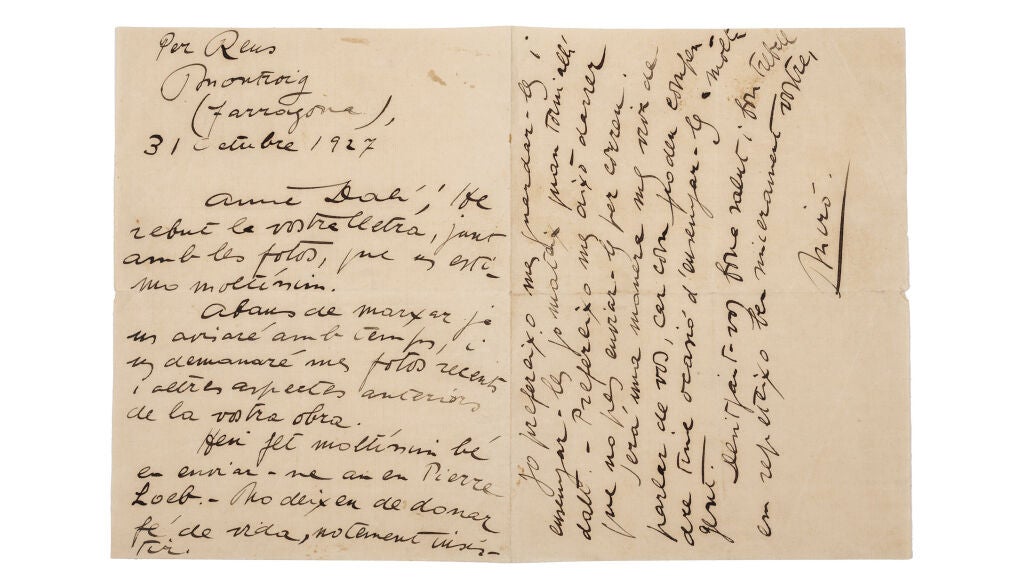 Per Reus
Montroig
(Tarragona),
31 octubre 1927
Amic Dalí, He
rebut la vostra lletra, junt
amb les fotos, que us esti-
mo moltíssim.
Abans de marxar ja
us avisaré amb temps, i
us demanaré mes fotos recents
i altres aspectes anteriors
de la vostra obra.
Heu fet moltíssim bé
en enviar-ne an en Pierre
Loeb.- No deixeu de donar
fé de vida, notament insis-
tir.
Jo prefereixo me guardar-les i
ensenyar-les jo mateix quan torni allí
dalt.- Prefereixo mes això darrer
que no pas enviar-les per correu.
Serà una manera mes viva de
parlar de vos, car com podeu compen-
dre tinc ocasió d'ensenyar-les a molta
gent.
Desitjant-vos bona salut i bon treball
em repeteixo ben sincerament vostre,
Miró.